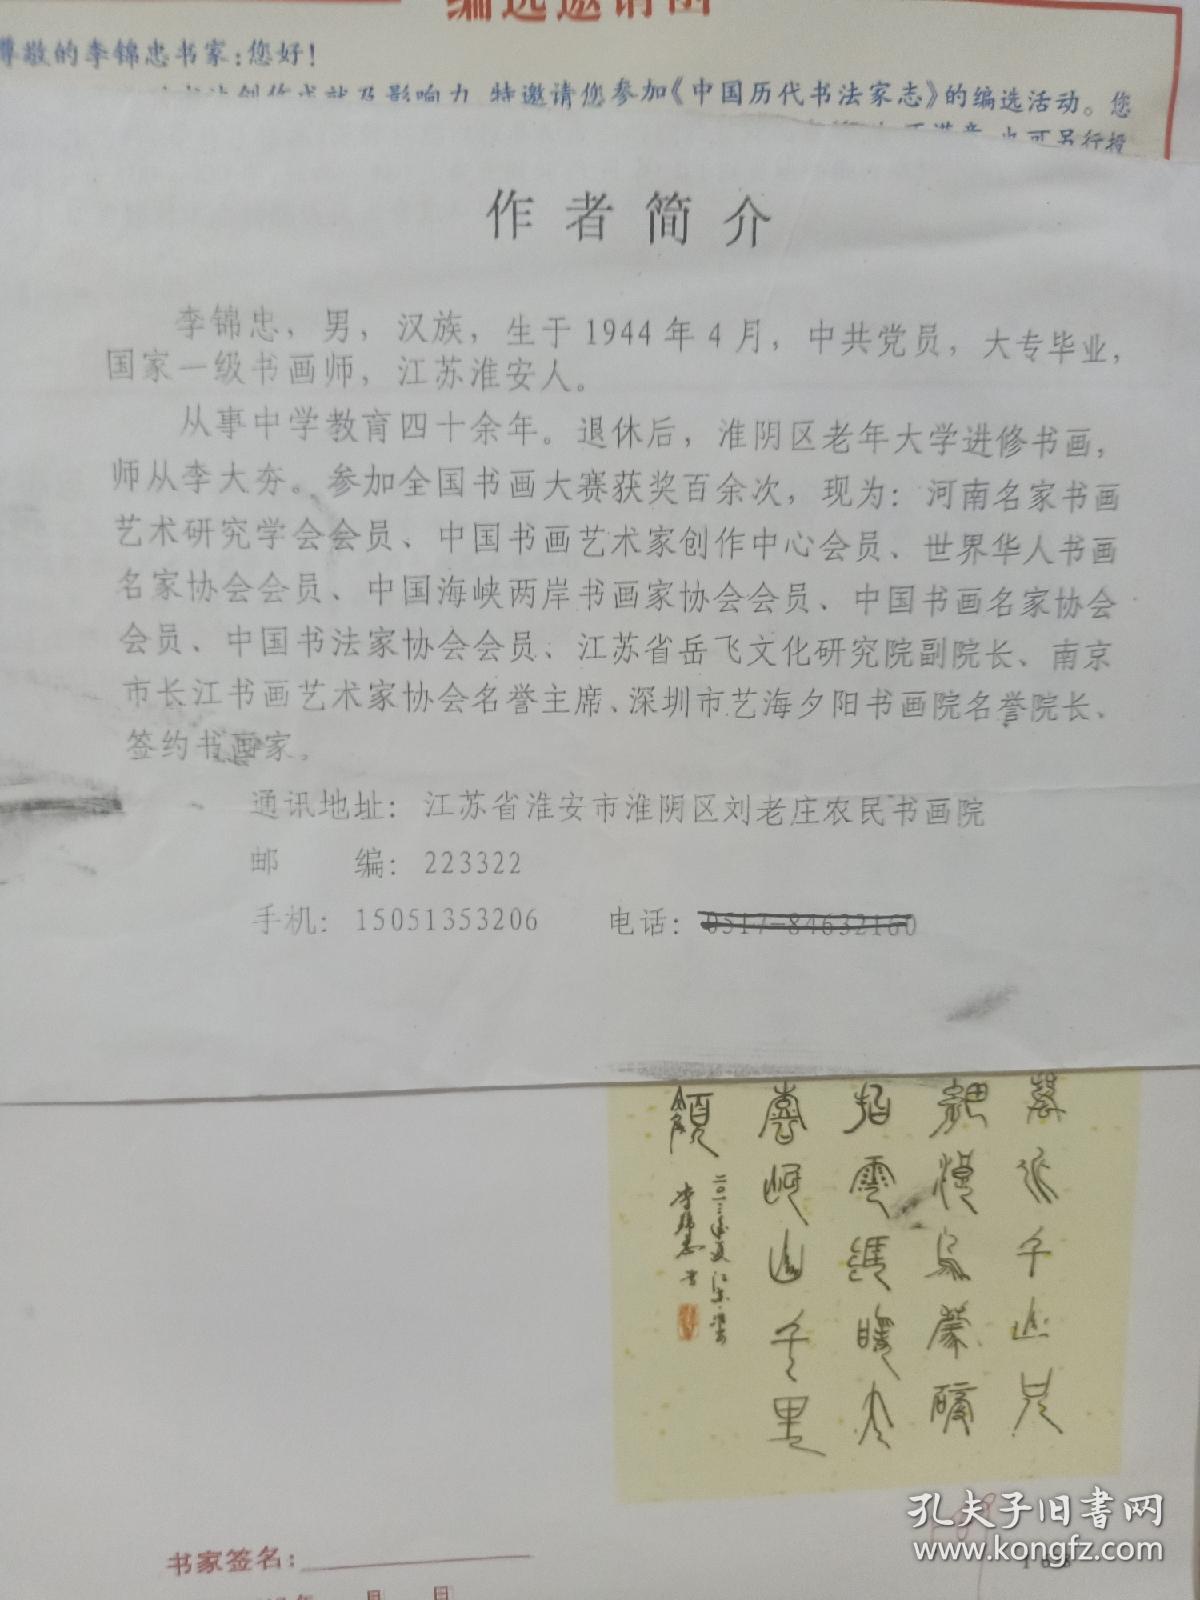 编选邀请函
尊敬的李锦忠书家:您好!
特邀请您参加《中国历代书法家志》的编选活动。您
也可另行投
作者简介
李锦忠，男，汉族，生于1944年4月，中共党员，大专毕业，
国家一级书画师，江苏淮安人。
从事中学教育四十余年。退休后，淮阴区老年大学进修书画，
师从李大夯。参加全国书画大赛获奖百余次，现为：河南名家书画
艺术研究学会会员、中国书画艺术家创作中心会员、世界华人书画
名家协会会员、中国海峡两岸书画家协会会员、中国书画名家协会
会员、中国书法家协会会员、江苏省岳飞文化研究院副院长、南京
市长江书画艺术家协会名誉主席、深圳市艺海夕阳书画院名誉院长、
签约书画家。
通讯地址：江苏省淮安市淮阴区刘老庄农民书画院
邮 编：223322
手机：15051353206 电话：0517-84632160
千山
云
暖
山千里
李锦忠书
书家签名:
年 月 日
孔夫子旧书网
www.kongfz.com